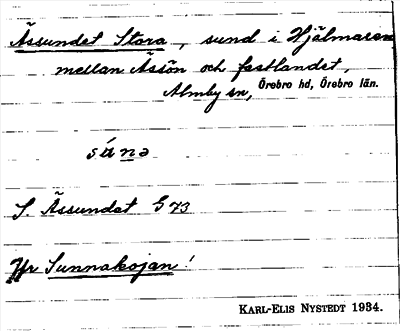 Ässundet Stora, sund i Hjälmaren
mellan Ässön och fastlandet,
Almby sn, Örebro hd, Örebro län.
súnə
S. Ässundet G 73
Jfr Sunnakojan!
KARL-ELIS NYSTEDT 1934.